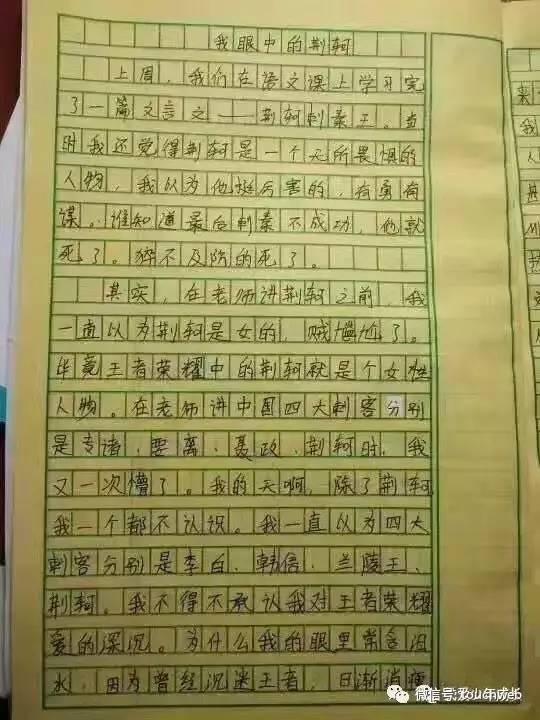 我眼中的荆轲
上周，我们在语文课上学习完
了一篇文言文——荆轲刺秦王。当
时我还觉得荆轲是一个无所畏惧的
人物，我认为他挺厉害的，有勇有
谋。谁知道最后刺秦不成功，他就
死了。猝不及防的死了。
其实，在老师讲荆轲之前，我
一直以为荆轲是女的，贼尴尬了。
毕竟王者荣耀中的荆轲就是个女性
人物。在老师讲中国四大刺客分别
是专诸，要离，聂政，荆轲时，我
又一次懵了。我的天啊，除了荆轲，
我一个都不认识。我一直以为四大
刺客分别是李白、韩信、兰陵王、
荆轲。我不得不承认我对王者荣耀
爱的深沉。为什么我的眼里常含泪
水，因为曾经沉迷王者，日渐消瘦